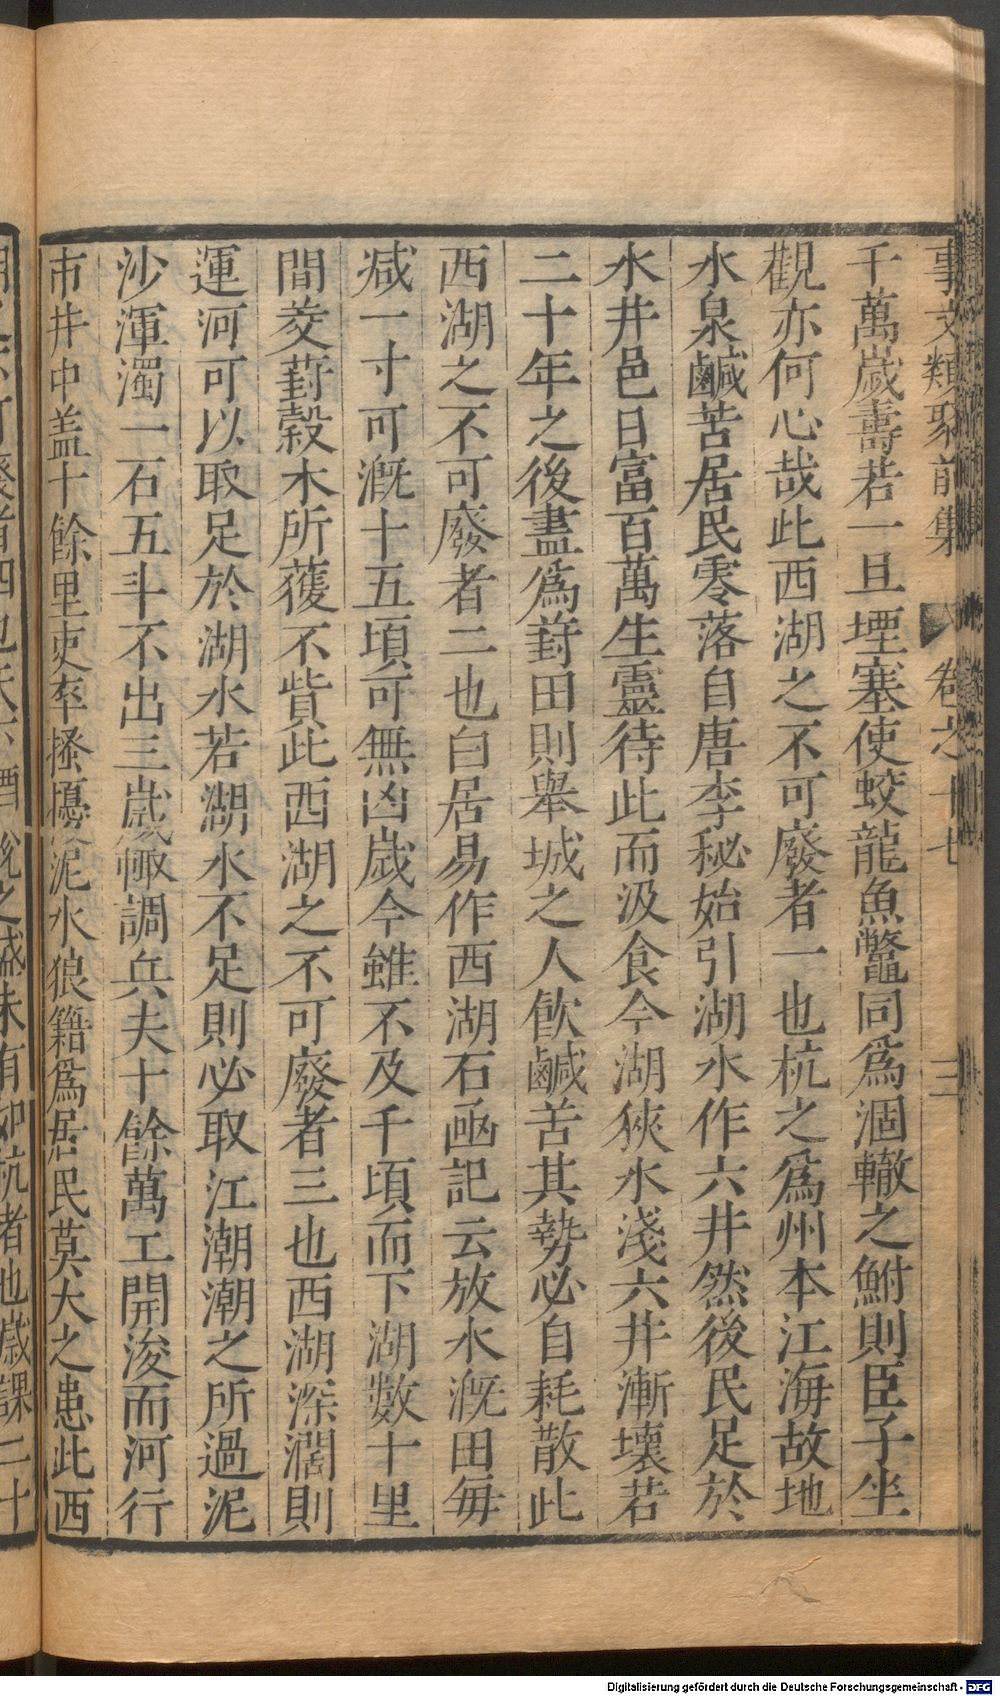 事文類聚前集 卷之十七 三
千萬歲壽若一旦堙塞使蛟龍魚鼈同爲涸轍之鮒則臣子坐
觀亦何心哉此西湖之不可廢者一也杭之爲州本江海故地
水泉鹹苦居民零落自唐李秘始引湖水作六井然後民足於
水井邑日富百萬生靈待此而汲食今湖狹水淺六井漸壞若
二十年之後盡爲葑田則舉城之人飲鹹苦其勢必自耗散此
西湖之不可廢者二也白居易作西湖石凾記云放水溉田每
减一寸可溉十五頃可無凶歲今雖不及千頃而下湖數十里
間茭葑穀木所獲不貲此西湖之不可廢者三也西湖深濶則
運河可以取足於湖水若湖水不足則必取江潮潮之所過泥
沙渾濁一石五斗不出三歲輙調兵夫十餘萬工開浚而河行
市井中盖十餘里吏卒搔擾泥水狼籍爲居民莫大之患此西
者四也天下酒稅之盛未有如杭者也歲課二十
Digitalisierung gefördert durch die Deutsche Forschungsgemeinschaft - DFG